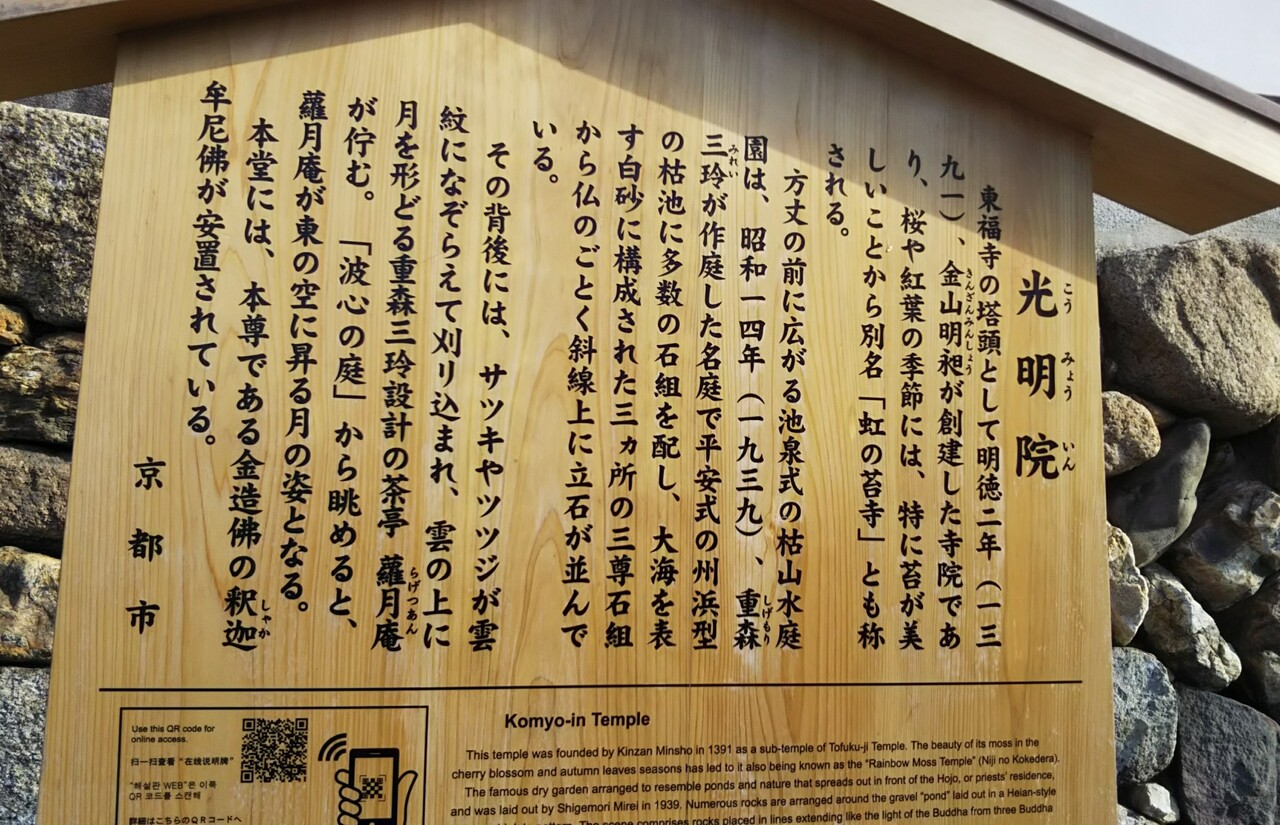 光明院
こうみょういん
東福寺の塔頭として明徳二年（一三
九一）、金山明昶が創建した寺院であ
きんざんみんしょう
り、桜や紅葉の季節には、特に苔が美
しいことから別名「虹の苔寺」とも称
される。
方丈の前に広がる池泉式の枯山水庭
園は、昭和一四年（一九三九）、重森
しげもり
三玲が作庭した名庭で平安式の州浜型
みれい
の枯池に多数の石組を配し、大海を表
す白砂に構成された三ヵ所の三尊石組
から仏のごとく斜線上に立石が並んで
いる。
その背後には、サツキやツツジが雲
紋になぞらえて刈り込まれ、雲の上に
月を形どる重森三玲設計の茶亭 蘿月庵
らげつあん
が佇む。「波心の庭」から眺めると、
蘿月庵が東の空に昇る月の姿となる。
本堂には、本尊である金造佛の釈迦
しゃか
牟尼佛が安置されている。
京都市
Use this QR code for
online access.
扫一扫查看 “在线说明牌”
“해설판 WEB”은 이쪽
QR 코드를 스캔해
詳細はこちらのQRコードへ
Komyo-in Temple
This temple was founded by Kinzan Minsho in 1391 as a sub-temple of Tofuku-ji Temple. The beauty of its moss in the
cherry blossom and autumn leaves seasons has led to it also being known as the “Rainbow Moss Temple” (Niji no Kokedera).
The famous dry garden arranged to resemble ponds and nature that spreads out in front of the Hojo, or priests’ residence,
and was laid out by Shigemori Mirei in 1939. Numerous rocks are arranged around the gravel “pond” laid out in a Heian-style
The scene comprises rocks placed in lines extending like the light of the Buddha from three Buddha